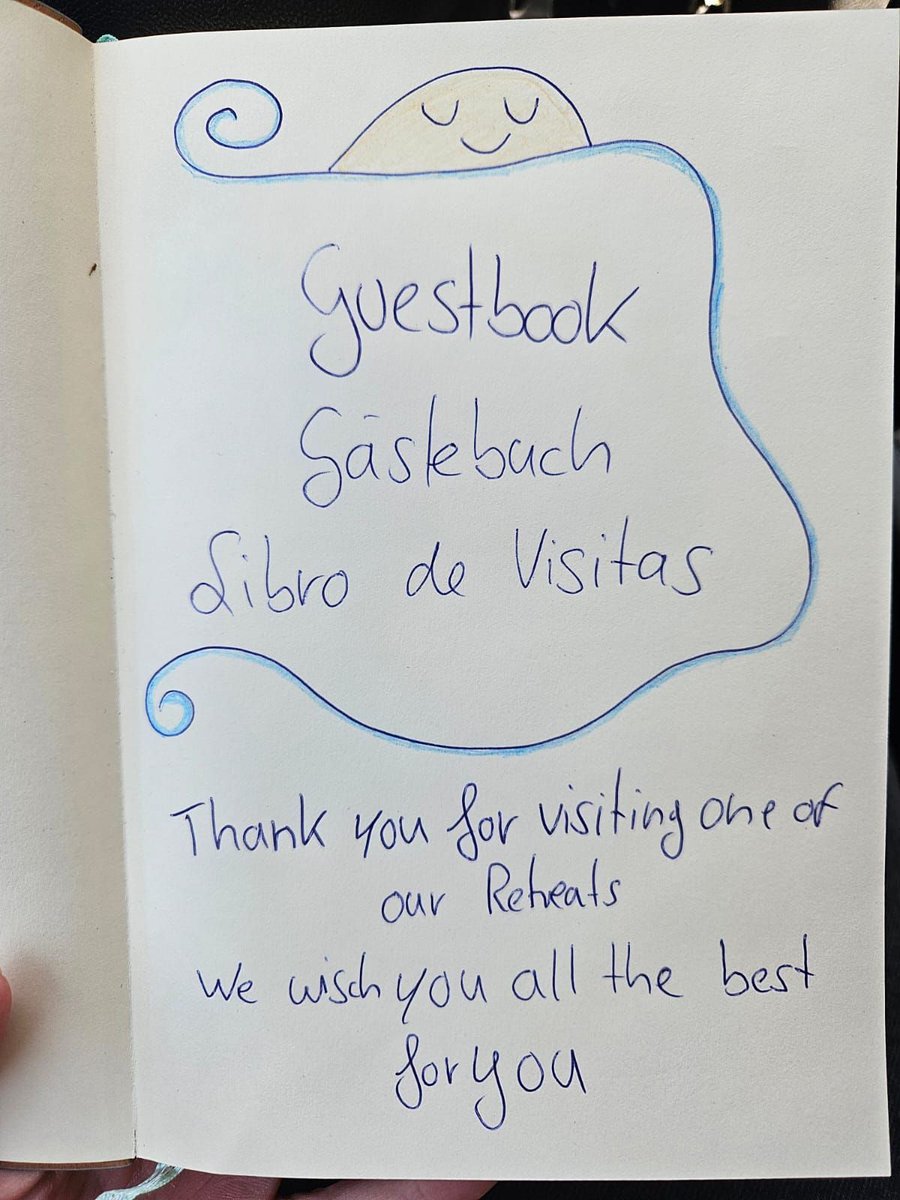 Guestbook
Gästebuch
Libro de Visitas
Thank you for visiting one of
our Retreats
We wisch you all the best
for you